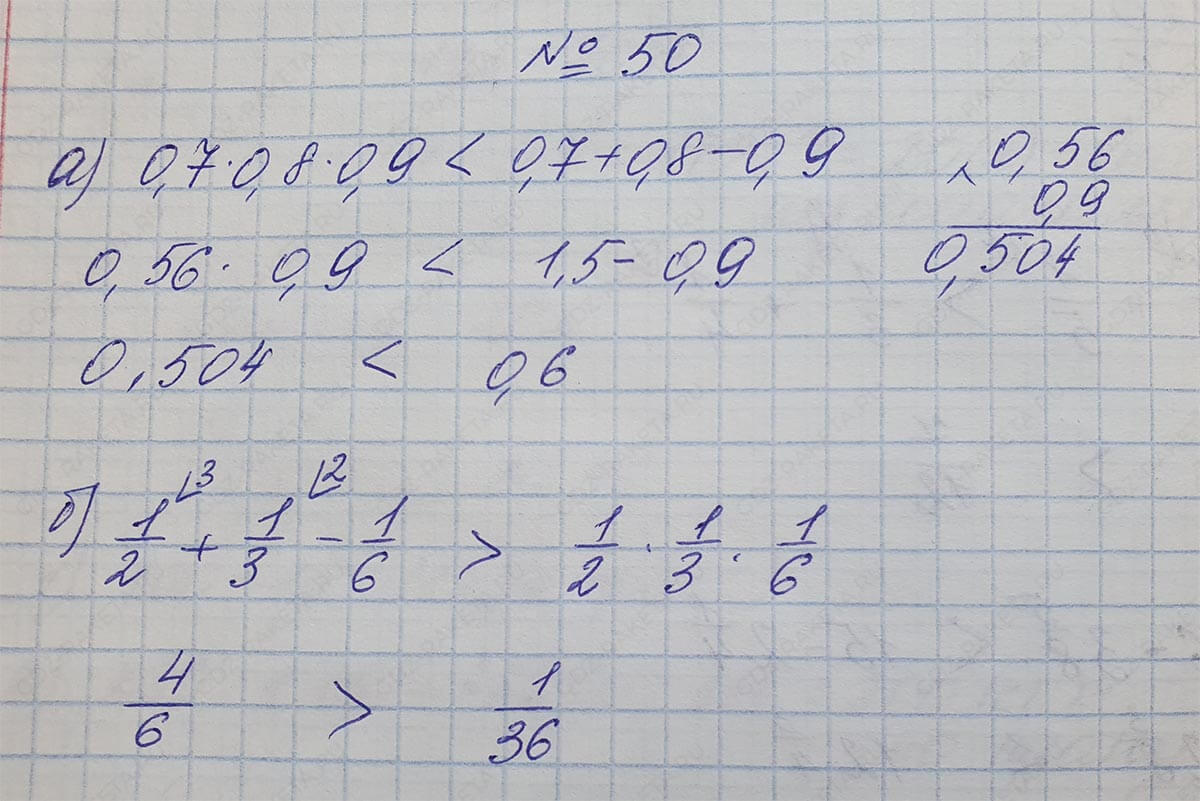 № 50
а) 0,7·0,8·0,9 < 0,7+0,8-0,9
0,56· 0,9 < 1,5- 0,9
0,504 < 0,6
× 0,56
0,9
0,504
б) 1/2 ⌊3 + 1/3 ⌊2 - 1/6 > 1/2 · 1/3 · 1/6
4/6 > 1/36